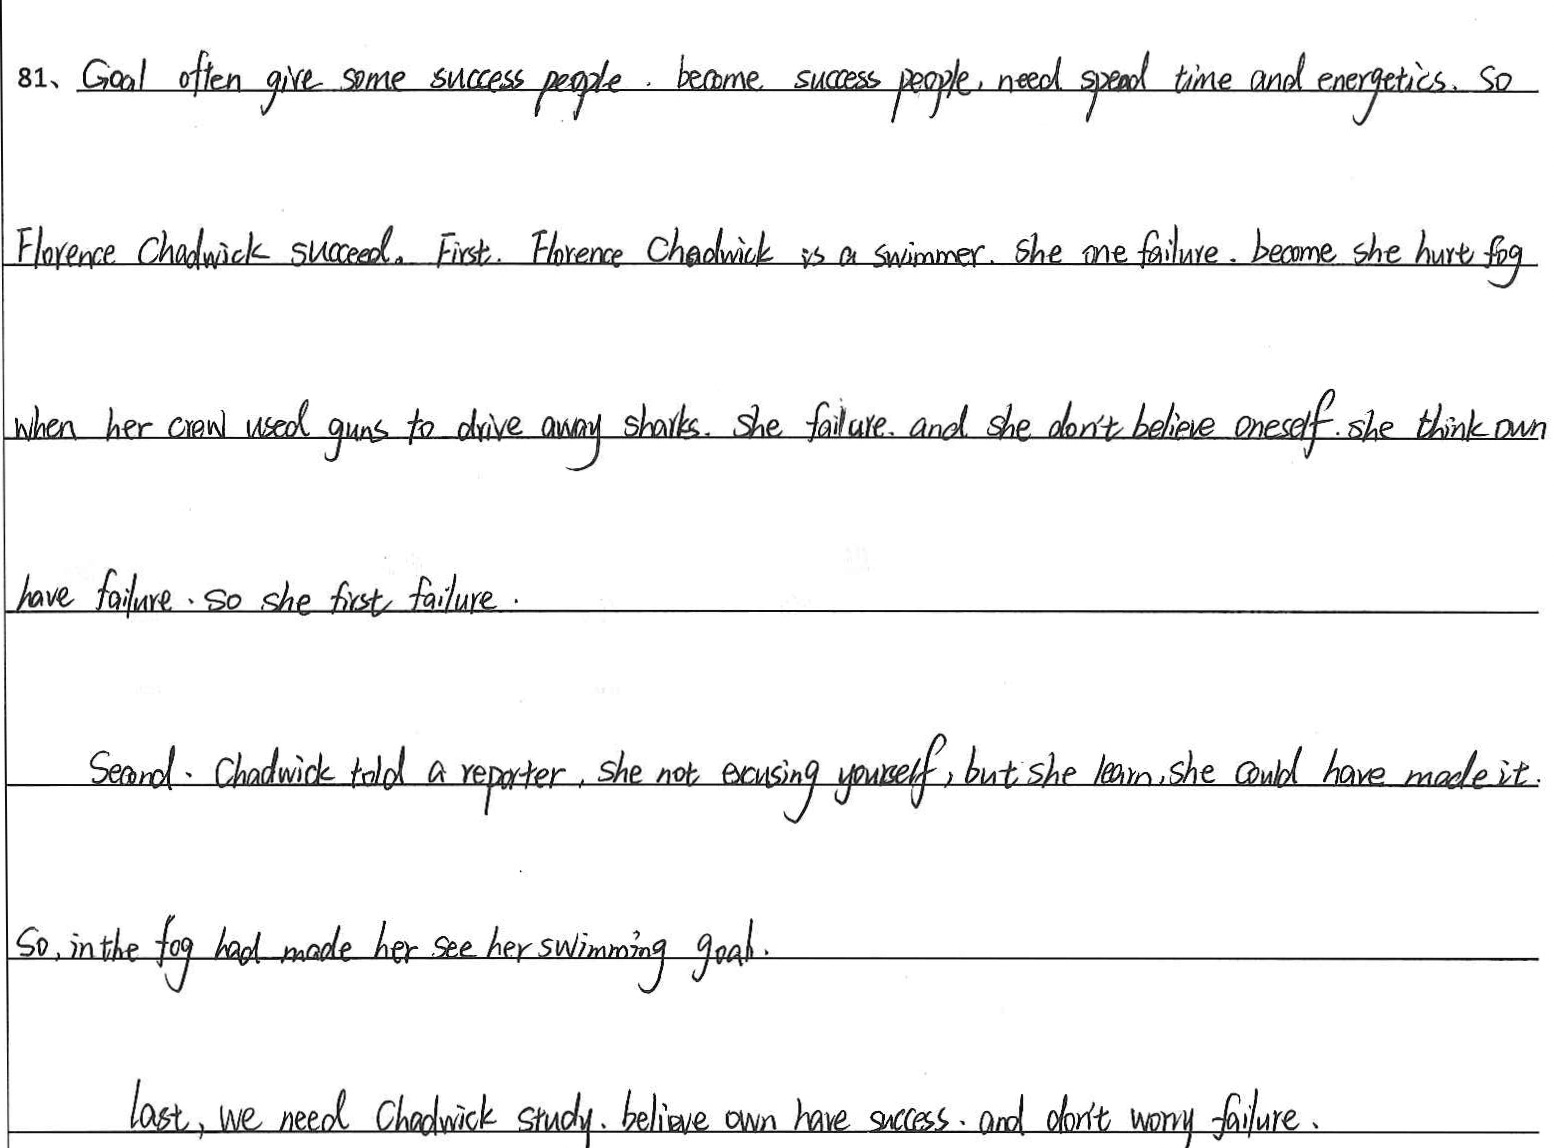 81、Goal often give some success people. become success people, need spend time and energetics. So
Florence Chadwick succeed. First. Florence Chadwick is a swimmer. She one failure. become she hurt fog
when her crew used guns to drive away sharks. She failure. and she don't believe oneself. she think own
have failure. so she first failure.
Second. Chadwick told a reporter, she not excusing yourself, but she learn, she could have made it.
So, in the fog had made her see her swimming goal.
last, we need Chadwick study. believe own have success. and don't worry failure.